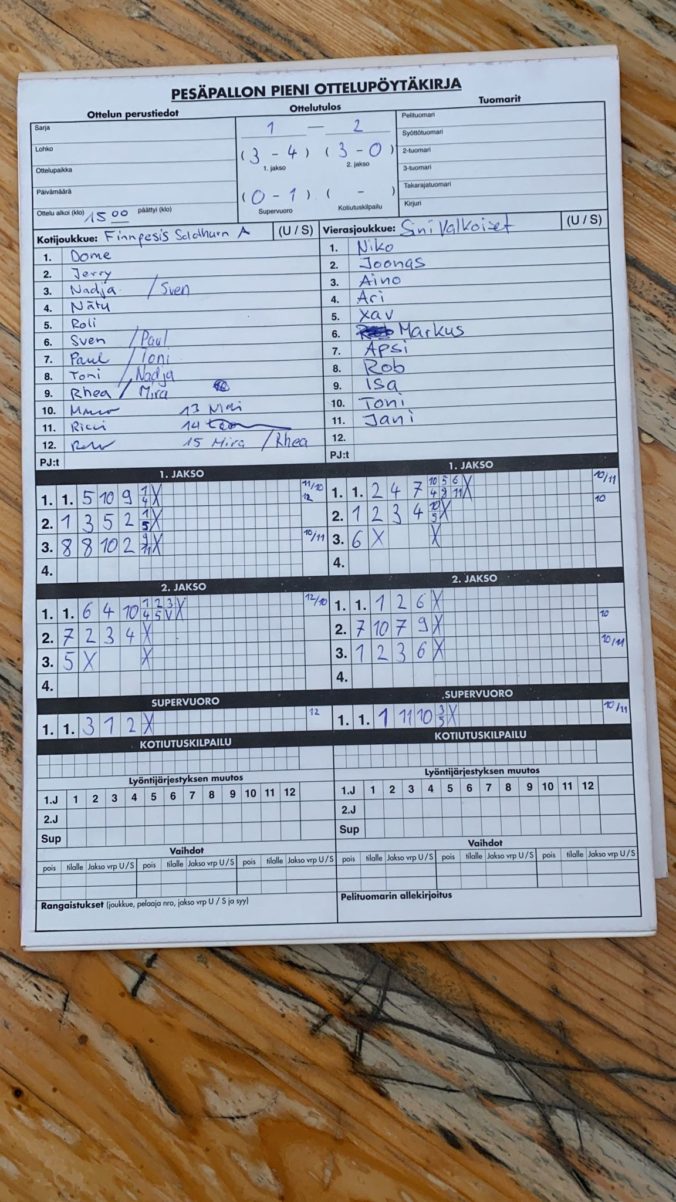 PESÄPALLON PIENI OTTELUPÖYTÄKIRJA
Ottelun perustiedot
Sarja
Lohko
Ottelupaikka
Päivämäärä
Ottelu alkoi (klo) 15 00 päättyi (klo)
Ottelutulos
1 – 2
(3 - 4) (3 - 0)
1. jakso 2. jakso
(0 - 1) ( - )
Supervuoro Kotiutuskilpailu
Tuomarit
Pelituomari
Syöttötuomari
2-tuomari
3-tuomari
Takarajatuomari
Kirjuri
Kotijoukkue: Finnpesis Solothurn A (U / S)
1. Dome
2. Jerry
3. Nadja /Sven
4. Nätu
5. Roli
6. Sven /Paul
7. Paul /Toni
8. Toni /Nadja
9. Rhea / Mira
10. 13
11. Ricci 14
12. 15 Mira /Rhea
PJ:t
Vierasjoukkue: SiniValkoiset (U / S)
1. Niko
2. Joonas
3. Aino
4. Ari
5. Xav
6. Markus
7. Apsi
8. Rob
9. Isa
10. Toni
11. Jani
12.
PJ:t
1. JAKSO
1. 1. 5 10 9 1 4 X 11/10 12
2. 1 3 5 2 1 5 X
3. 8 8 10 2 9 11 X 10/11
4.
1. JAKSO
1. 1. 2 4 7 10 5 6 4 9 11 X 10/11
2. 1 2 3 4 10 5 X 10
3. 6 X X
4.
2. JAKSO
1. 1. 6 4 10 1 2 3 4 5 V X 12/10
2. 7 2 3 4 X
3. 5 X X
4.
2. JAKSO
1. 1. 1 2 6 X
2. 7 10 7 9 X 10
3. 1 2 3 6 X 10/11
4.
SUPERVUORO
1. 1. 3 1 2 X 12
SUPERVUORO
1. 1. 1 11 10 3 5 X 10/11
KOTIUTUSKILPAILU
KOTIUTUSKILPAILU
Lyöntijärjestyksen muutos
1.J 1 2 3 4 5 6 7 8 9 10 11 12
2.J
Sup
Lyöntijärjestyksen muutos
1.J 1 2 3 4 5 6 7 8 9 10 11 12
2.J
Sup
Vaihdot
pois tilalle Jakso vrp U / S pois tilalle Jakso vrp U / S pois tilalle Jakso vrp U / S
Vaihdot
pois tilalle Jakso vrp U / S pois tilalle Jakso vrp U / S pois tilalle Jakso vrp U / S
Rangaistukset (joukkue, pelaaja nro, jakso vrp U / S ja syy)
Pelituomarin allekirjoitus